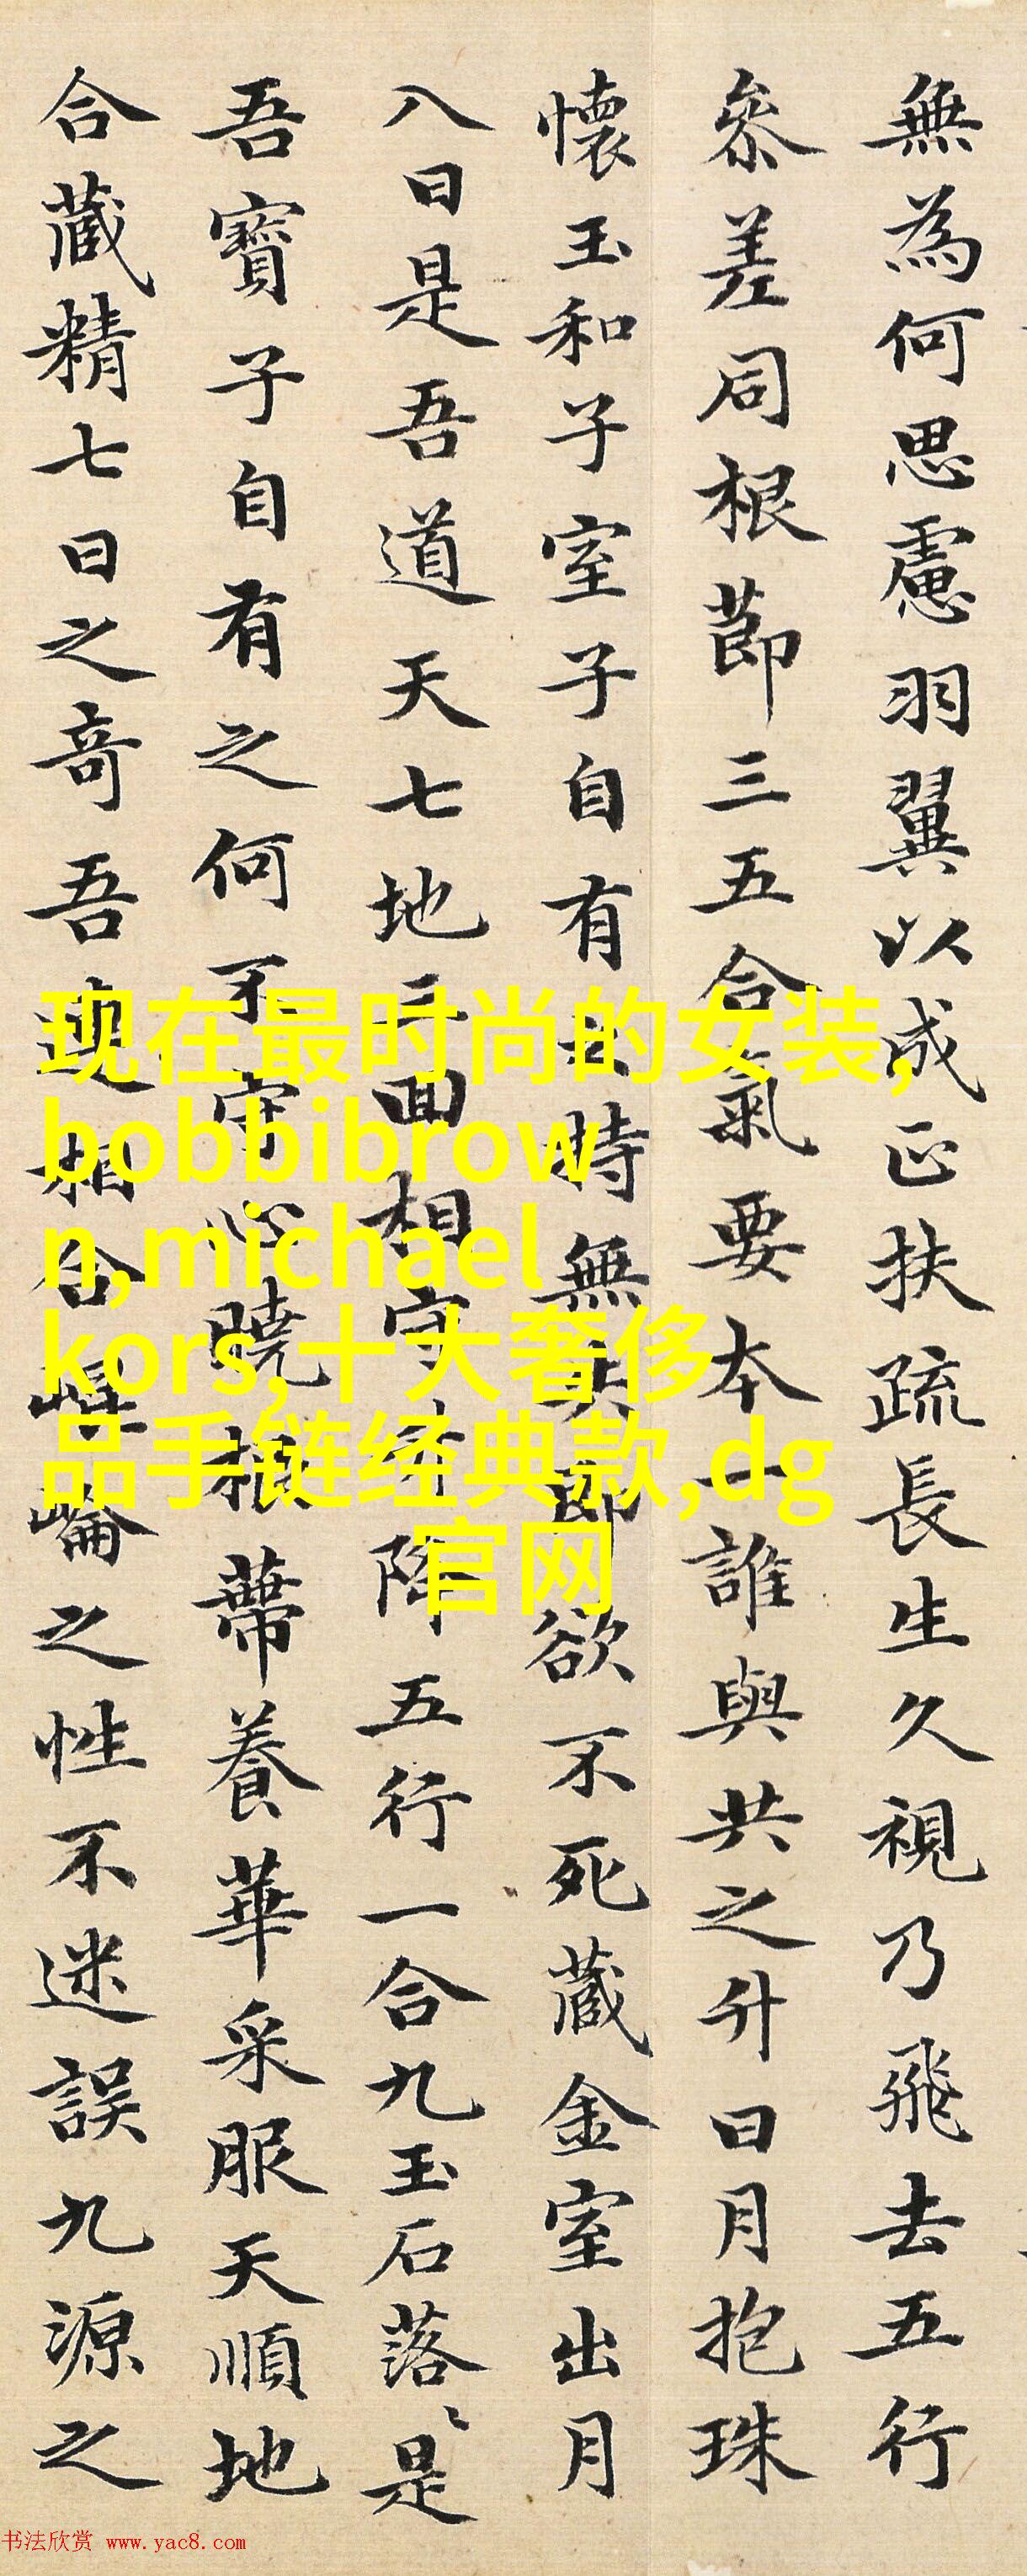 無為何思慮羽翼以成正扶疏長生久視乃飛去五行
參差同根節三五合氣要本一誰與共之升日月抱珠
懷玉和子室子自有之持無失即欲不死藏金室出月
入日是吾道天七地三回相守升降五行一合九玉石落〻是
吾寶子自有之何不守心曉根蔕養華采服天順地
合藏精七日之奇吾連相合崐崘之性不迷誤九源之
现在最时尚的女装,
bobbibrow
n,michael
kors,十大奢侈
品手链经典款,dg
官网
书法欣赏 www.yac8.com